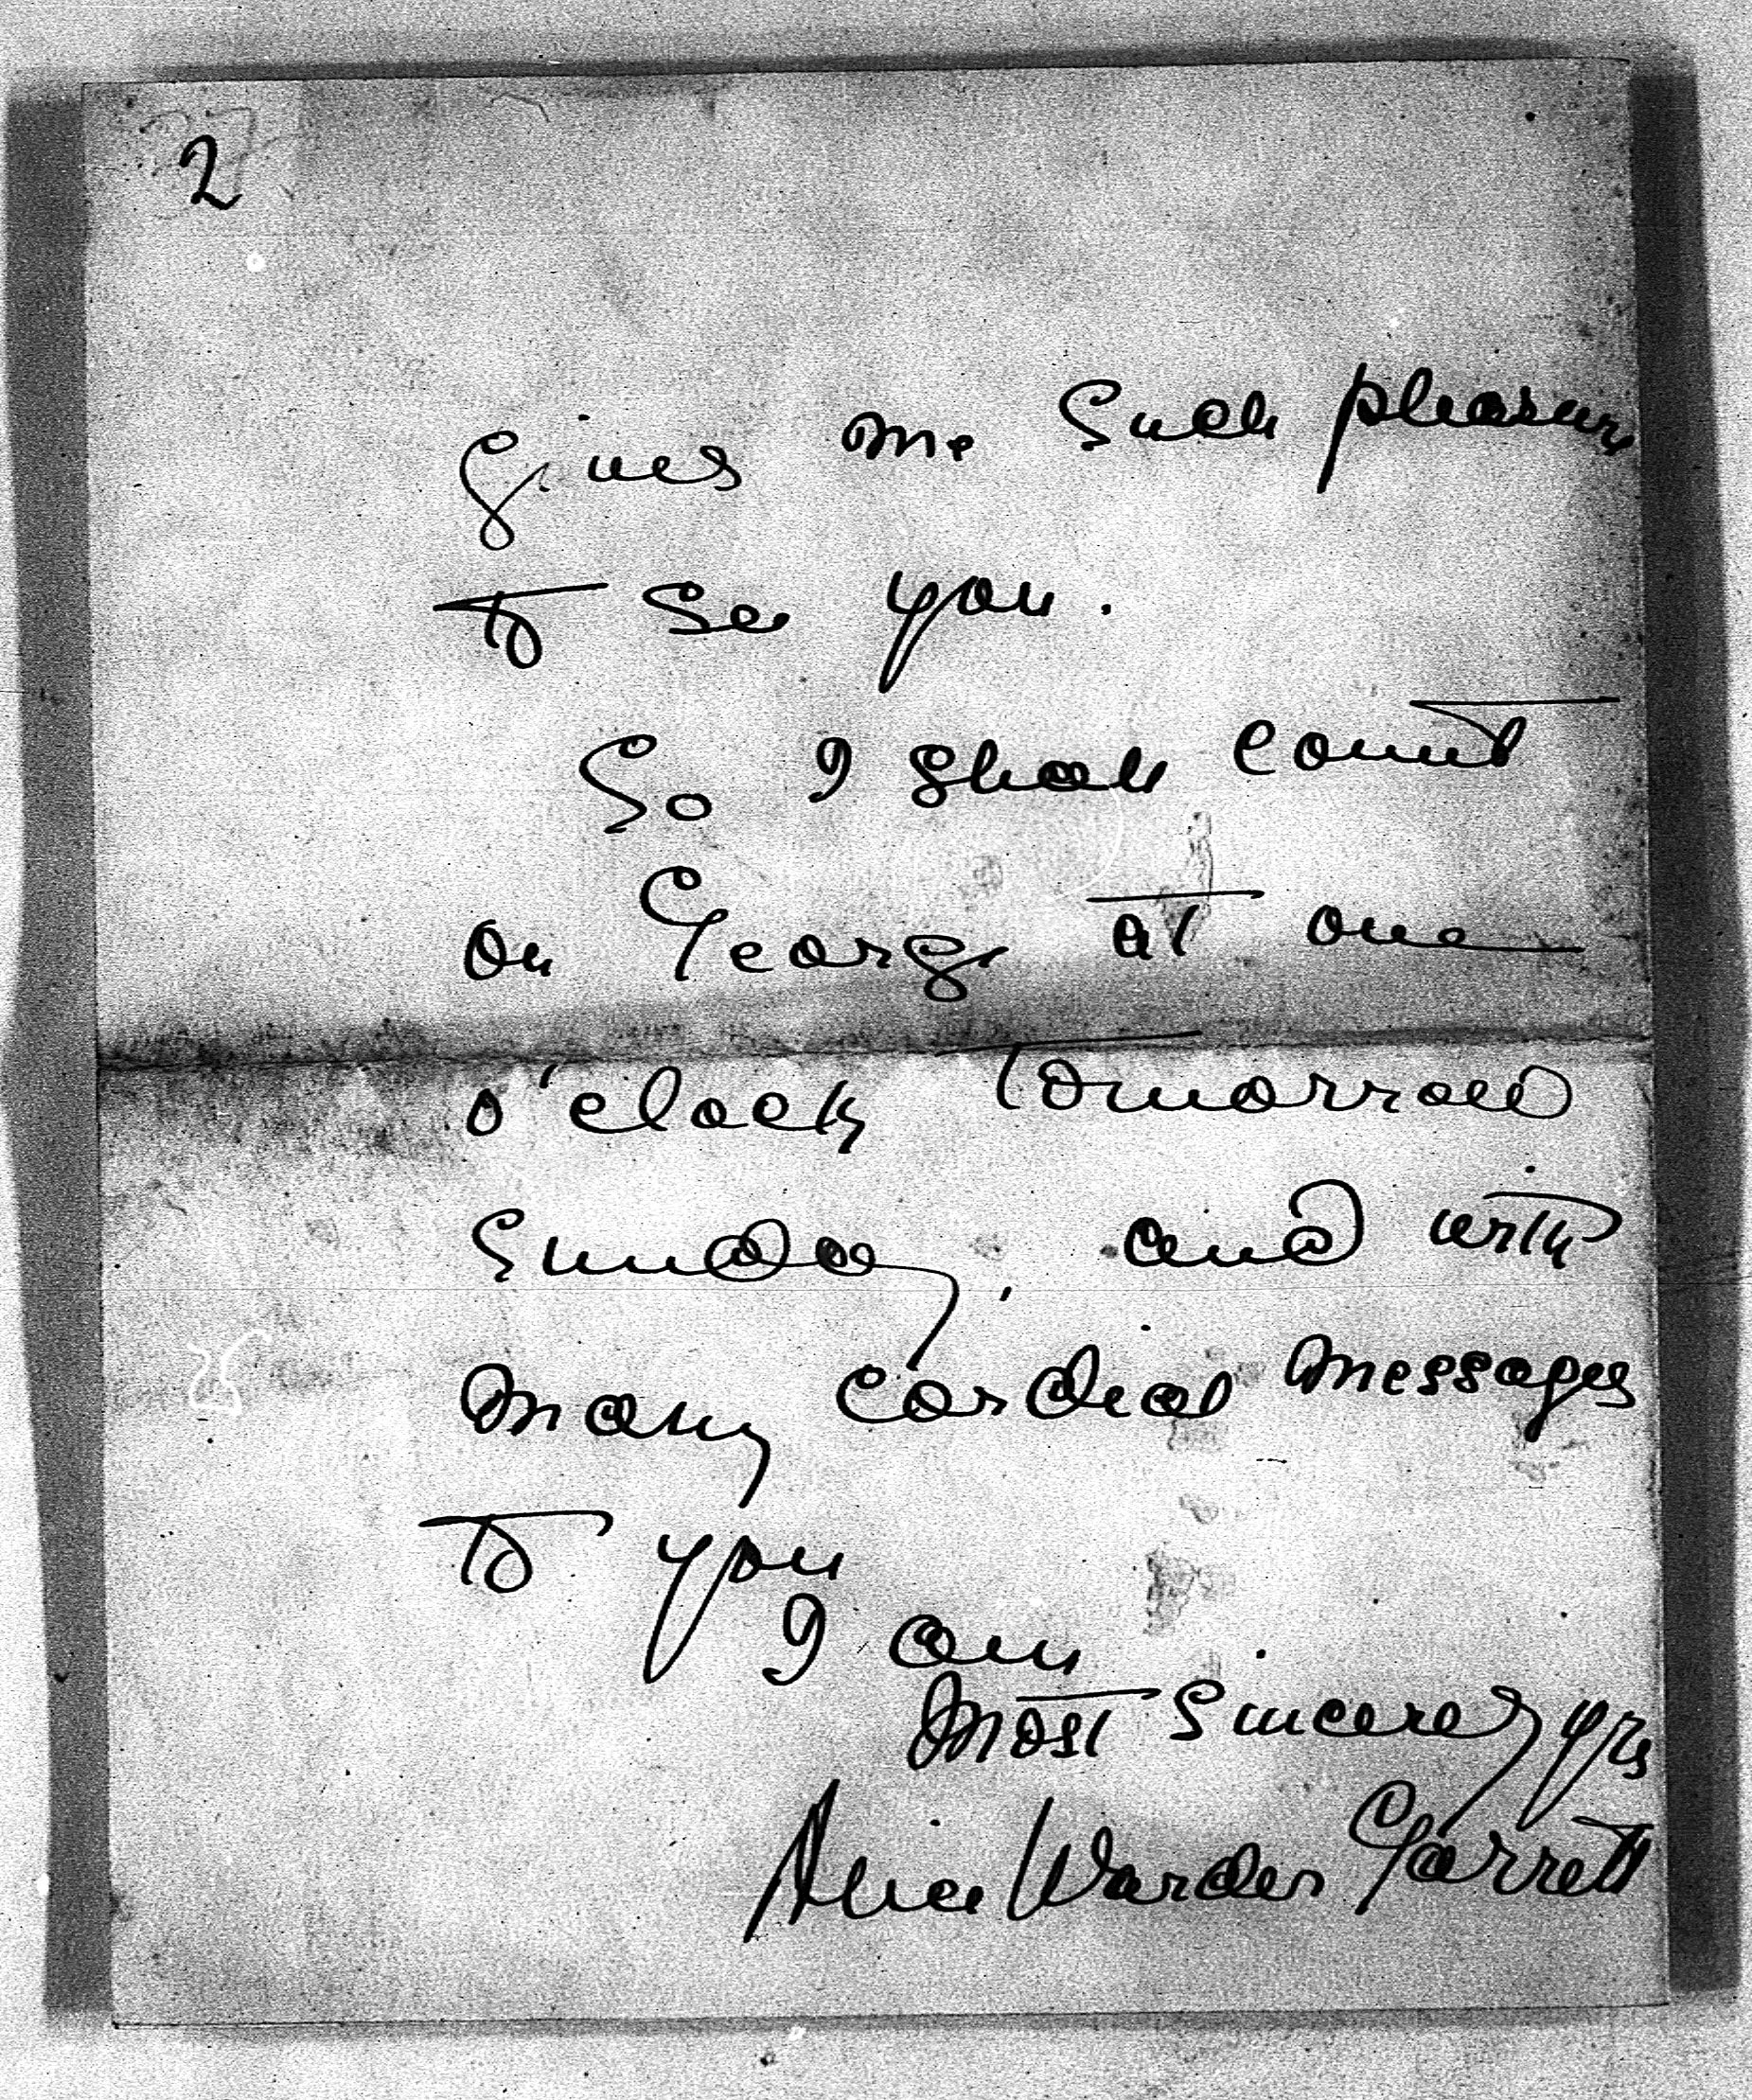 2
gives me such pleasure
to see you.
So I shall count
on George at one
o'clock tomorrow
Sunday, and with
many cordial messages
to you
I am
most sincerely yrs
Alice Warder Garrett